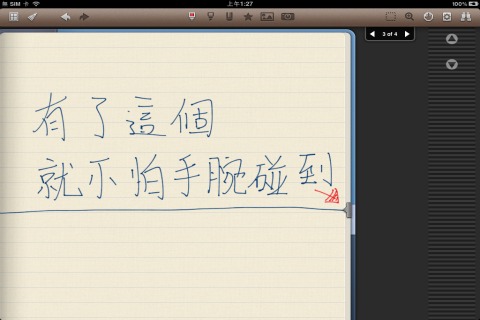 無 SIM 卡
上午1:27
100%
3 of 4
有了這個
就不怕手腕碰到